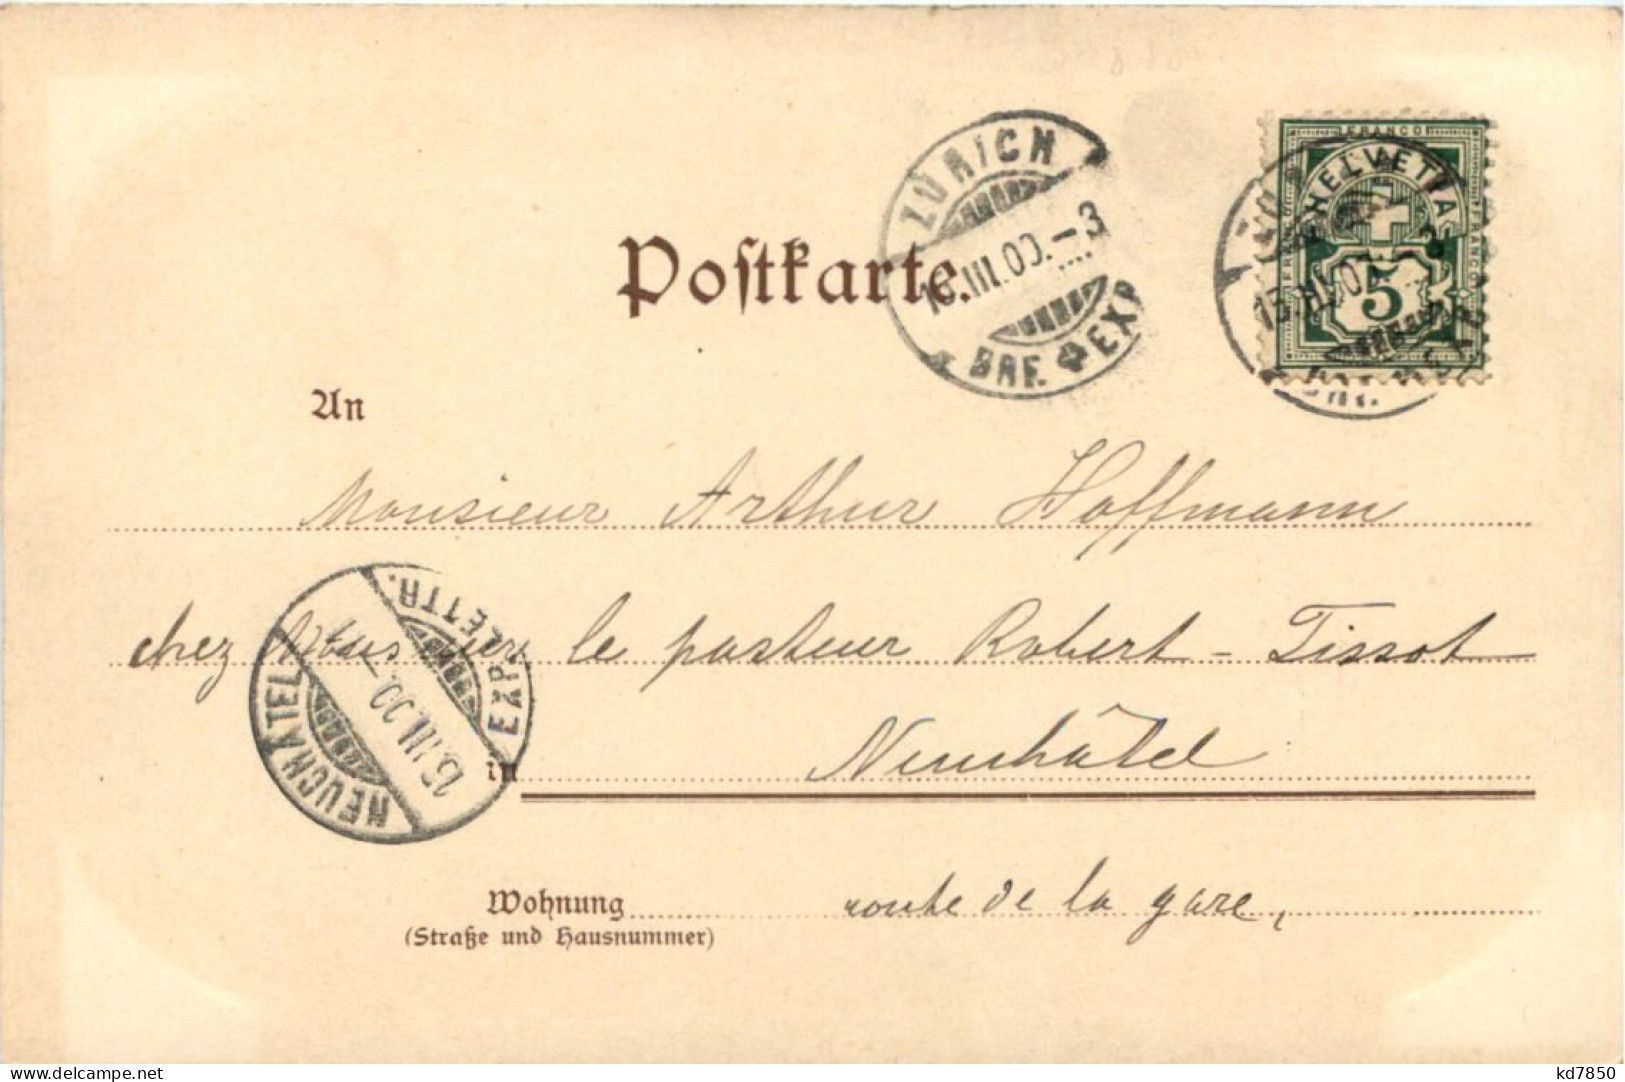 ZÜRICH
15.III.00.-3
BRF. EXP
FRANCO
HELVETIA
FRANCO
5
Postkarte.
An
Monsieur Arthur Hoffmann
chez Monsieur le pasteur Robert-Tissot
in Neuchâtel
NEUCHÂTEL
15.III.00.-
EXP. LETTR.
Wohnung route de la gare,
(Straße und Hausnummer)
delcampe.net
kd7850